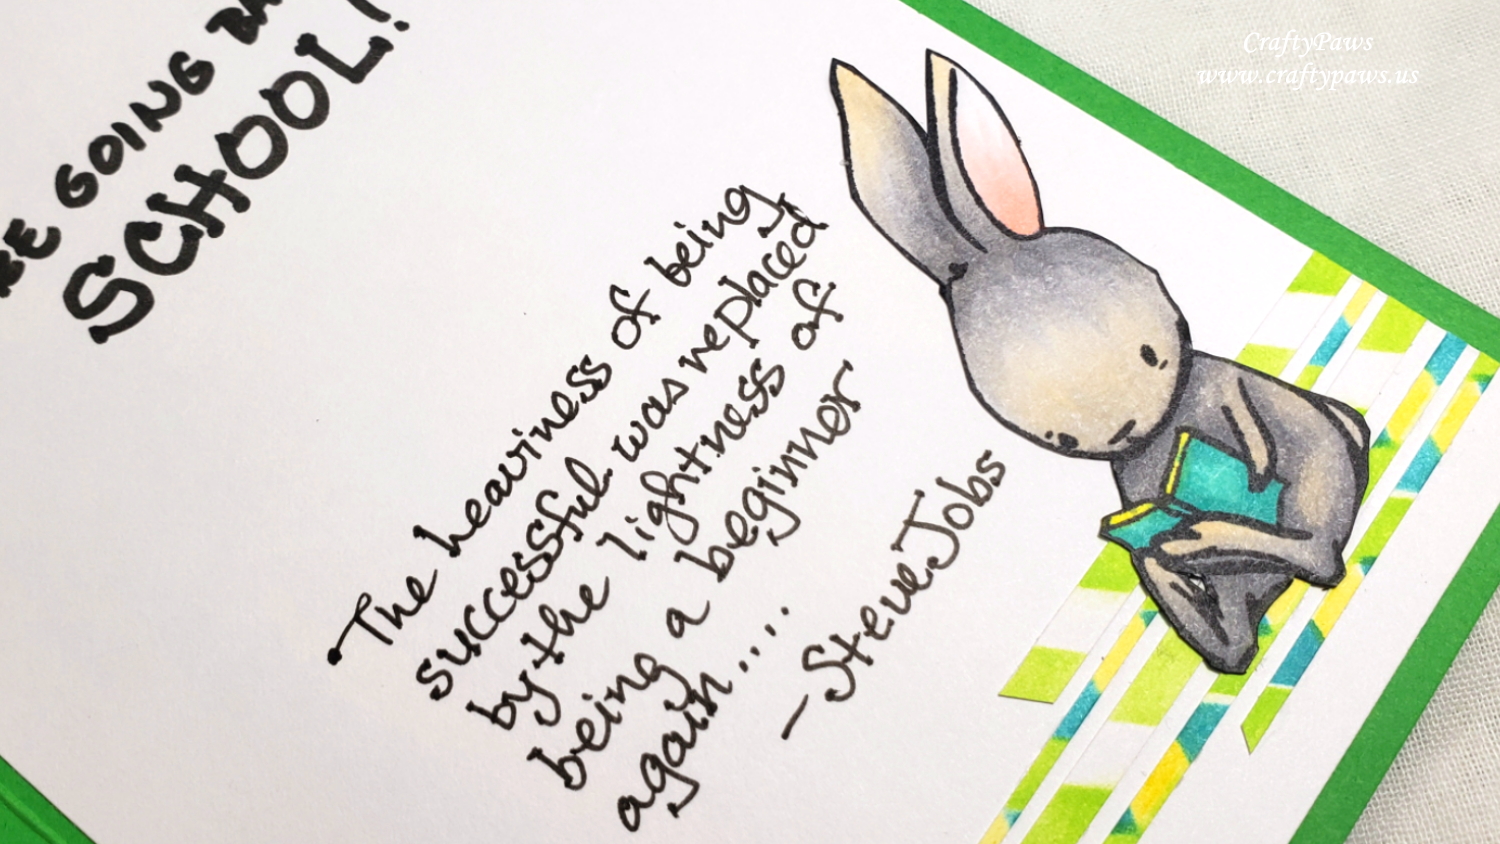 GOING
SCHOOL!
The heaviness of being
successful was replaced
by the lightness of
being a beginner
again....
-Steve Jobs
CraftyPaws
www.craftypaws.us